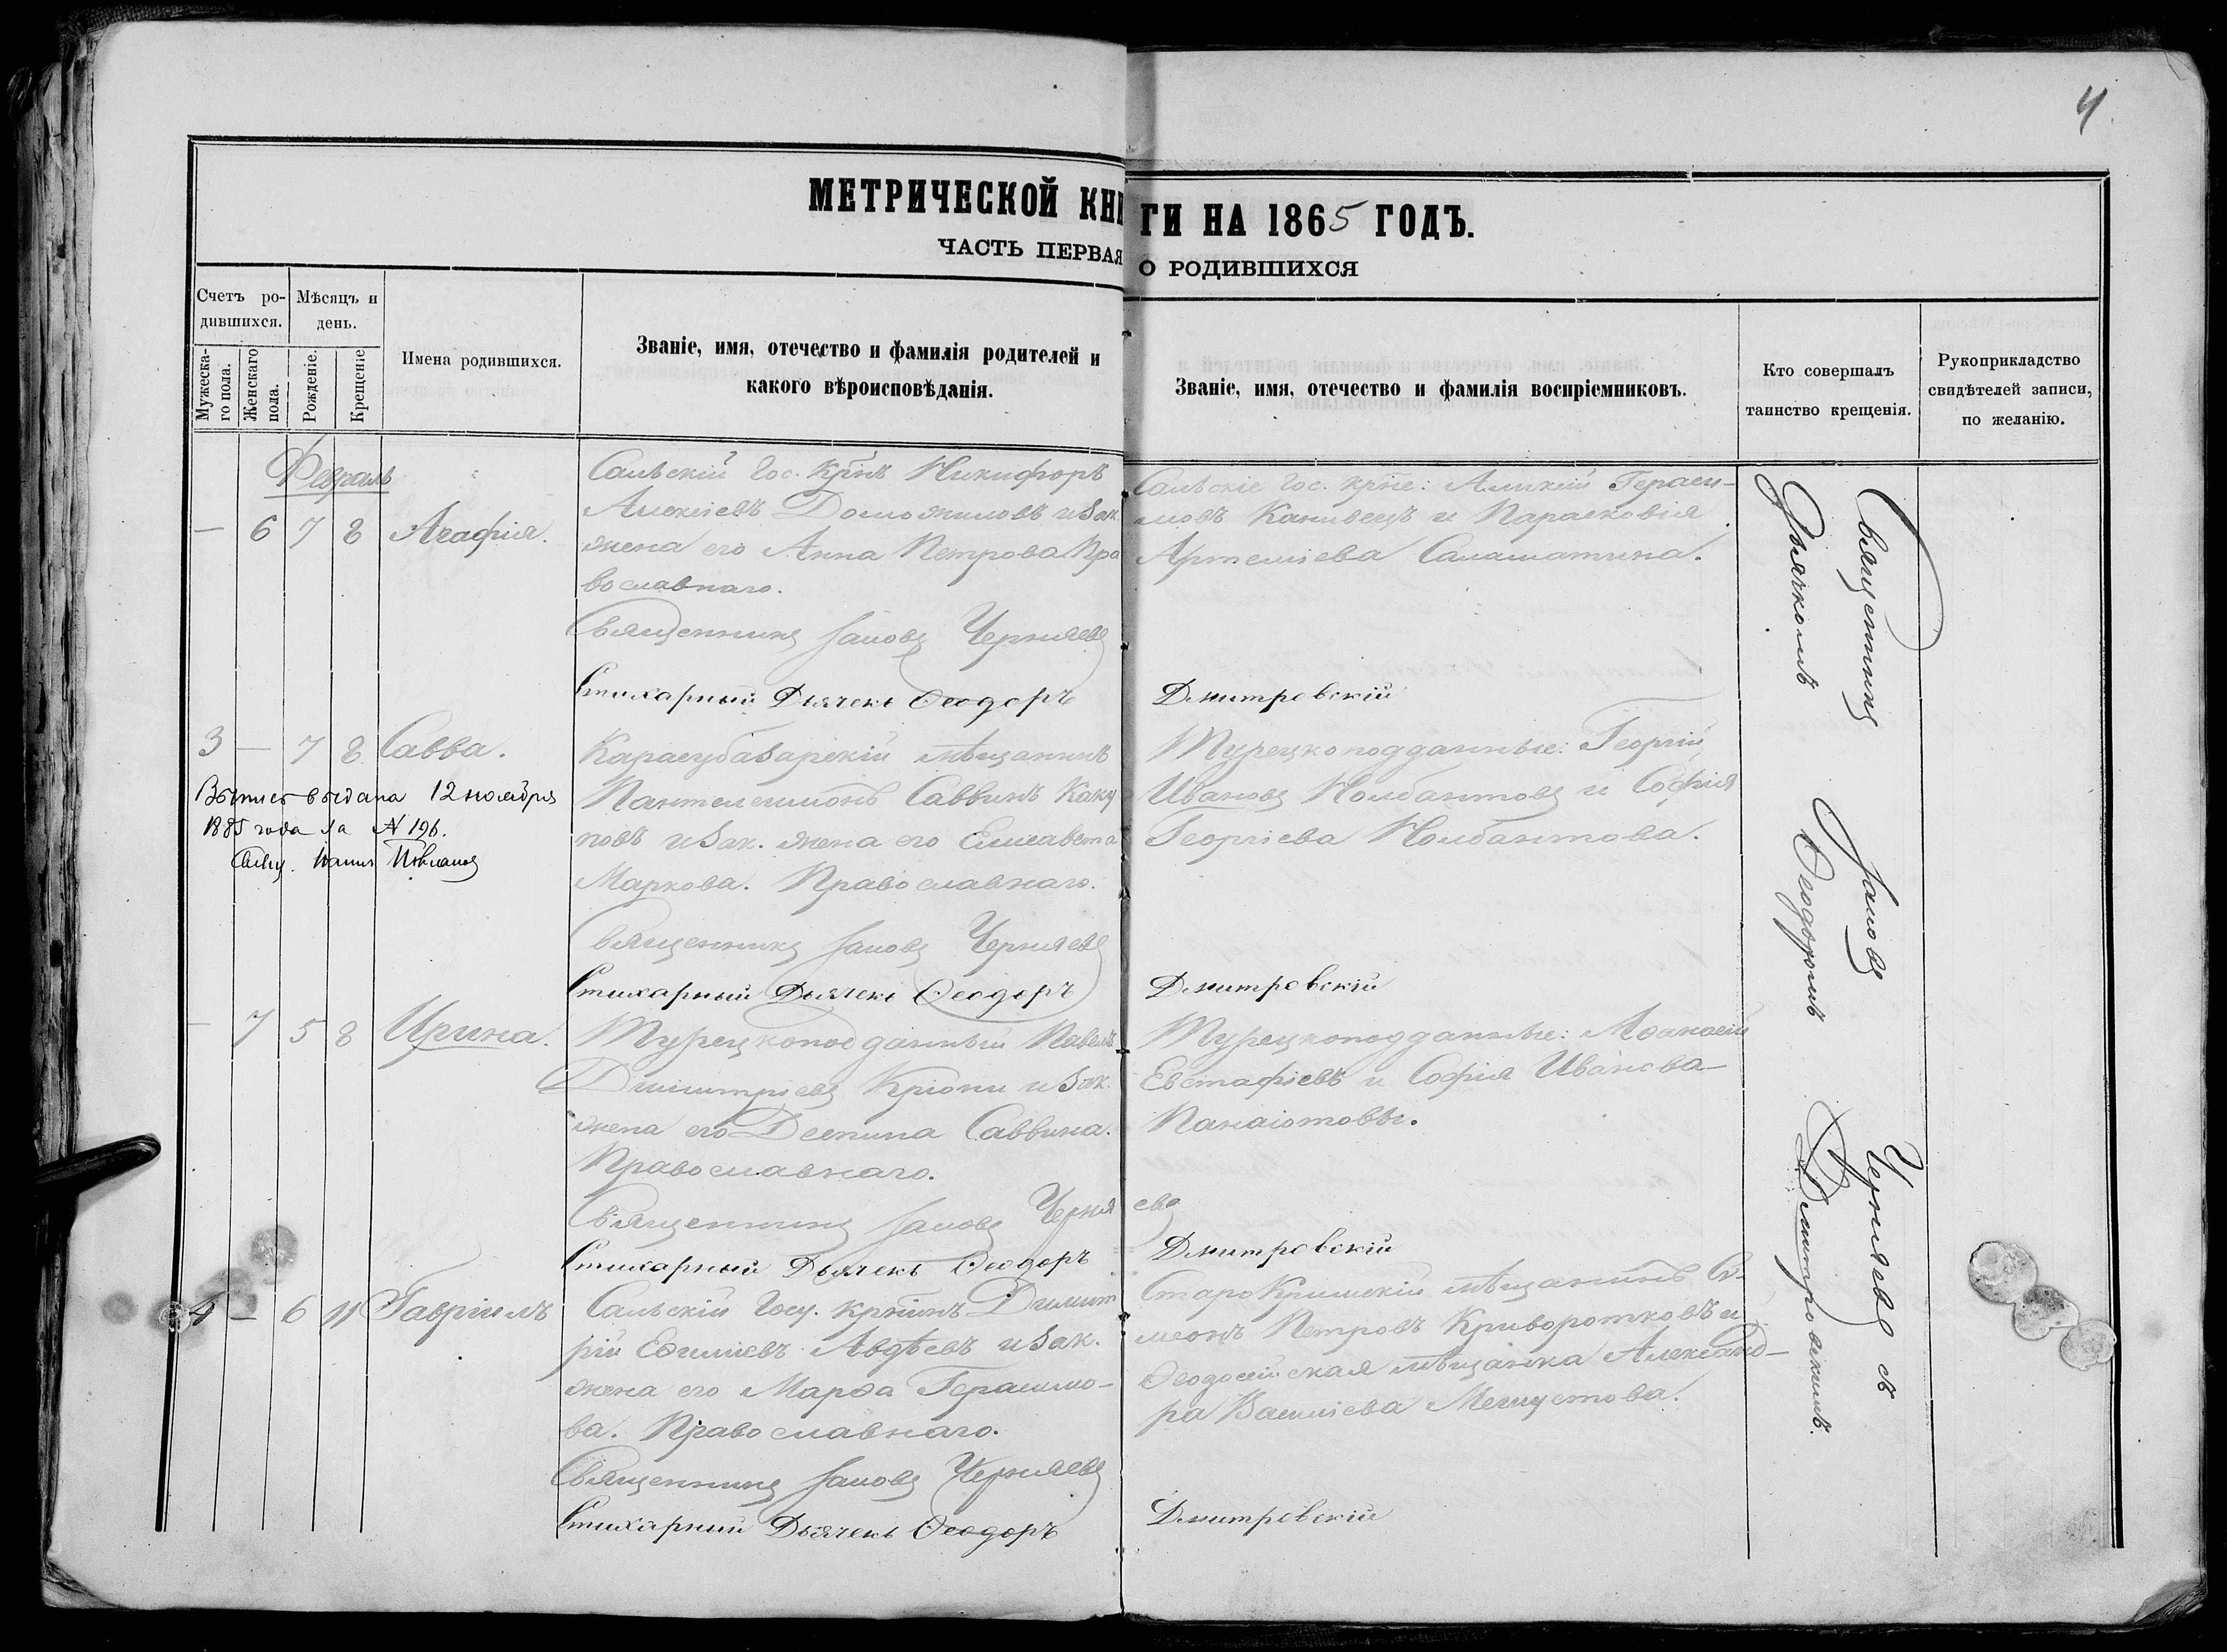 4
МЕТРИЧЕСКОЙ КНИГИ НА 1865 ГОДЪ.
ЧАСТЬ ПЕРВАЯ О РОДИВШИХСЯ
Счетъ ро-
дившихся.
Мѣсяцъ и
день.
Мужеска-
го пола.
Женскаго
пола.
Рожденіе.
Крещеніе
Имена родившихся.
Званіе, имя, отечество и фамилія родителей и
какого вѣроисповѣданія.
Званіе, имя, отечество и фамилія воспріемниковъ.
Кто совершалъ
таинство крещенія.
Рукоприкладство
свидѣтелей записи,
по желанію.
Февраль
— 6 7 8 Агафія.
Сальскій Гос. Крнъ Никифоръ
Алексіевъ Доможиловъ и зак.
жена его Анна Петрова Пра
вославнаго.
Священникъ Іаковъ Черняевъ
Стихарный Дьячекъ Ѳеодоръ
Сальскіе Гос. крне: Алексій Герасим-
овъ Канивецъ и Парасковія
Артеміева Саламатина.
Дмитровскій
3 — 7 8 Савва.
Выпись выдана 12 ноября
1885 года за № 196.
Свящ.
Карасубазарскій мѣщанинъ
Пантелеимонъ Саввинъ Каку
новъ и зак. жена его Елисавета
Маркова. Православнаго.
Священникъ Іаковъ Черняевъ
Стихарный Дьячекъ Ѳеодоръ
Турецкоподданные: Георгій
Ивановъ Колбантовъ и Софія
Георгіева Колбантова.
Дмитровскій
— 7 5 8 Ирина.
Турецкоподданный Павелъ
Димитріевъ Кріони и зак.
жена его Деспина Саввина.
Православнаго.
Священникъ Іаковъ Черняевъ
Стихарный Дьячекъ Ѳеодоръ
Турецкоподданные: Аѳанасій
Евстафіевъ и Софія Иванова
Панаіотовы.
Дмитровскій
4 — 6 11 Гавріилъ
Сальскій Госу. крнинъ Димит
рій Еѳиміевъ Авдѣевъ и зак.
жена его Марѳа Герасимо-
ва. Православнаго.
Священникъ Іаковъ Черняевъ
Стихарный Дьячекъ Ѳеодоръ
СтароКрымскій мѣщанинъ Си-
меонъ Петровъ Криворотковъ и
Ѳеодосійская мѣщанка Александ-
ра Василіева
Дмитровскій
Священникъ Іаковъ Черняевъ съ
Дьячкомъ Ѳеодоромъ Дмитровскимъ.